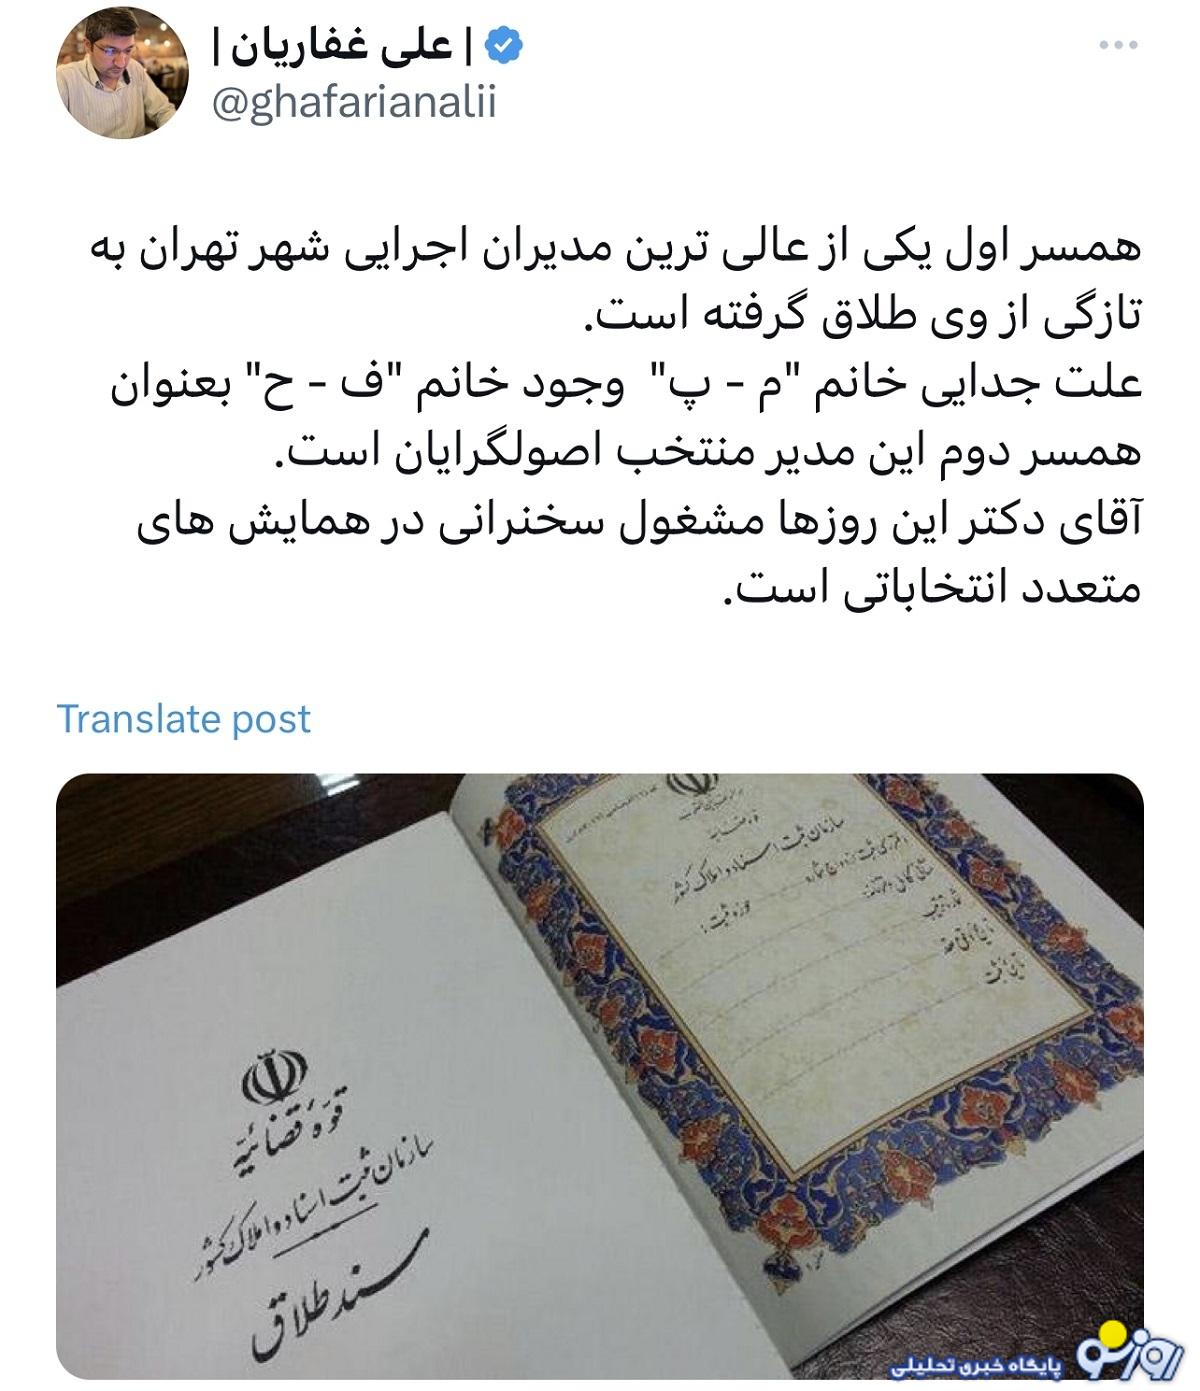 | علی غفاریان |
@ghafarianalii
همسر اول یکی از عالی ترین مدیران اجرایی شهر تهران به
تازگی از وی طلاق گرفته است.
علت جدایی خانم "م - پ"  وجود خانم "ف - ح" بعنوان
همسر دوم این مدیر منتخب اصولگرایان است.
آقای دکتر این روزها مشغول سخنرانی در همایش های
متعدد انتخاباتی است.
Translate post
قوه قضائیه
سازمان ثبت اسناد و املاک کشور
حوزه ثبت :
تاریخ ثبت
قوّه قضائیّه
سازمان ثبت اسناد و املاک کشور
سند طلاق
روز نو
پایگاه خبری تحلیلی